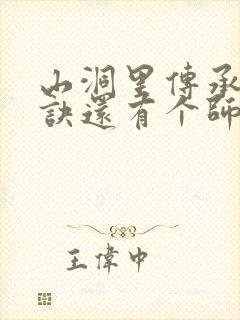 山洞里傳承
訣還有个師
王偉中